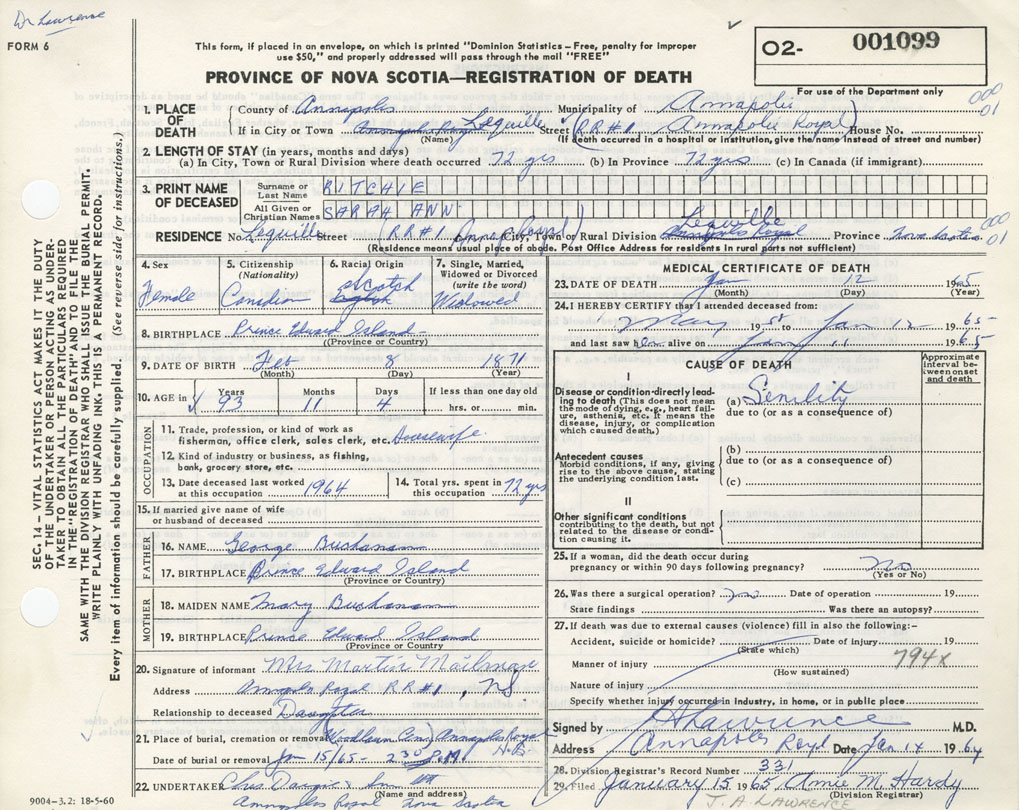 Dr Lawrence
FORM 6
This form, if placed in an envelope, on which is printed "Dominion Statistics – Free, penalty for improper
use $50," and properly addressed will pass through the mail "FREE"
PROVINCE OF NOVA SCOTIA—REGISTRATION OF DEATH
O2- 001099
For use of the Department only
000
01
1. PLACE OF DEATH
County of Annapolis Municipality of Annapolis
If in City or Town Lequille Street (RR#1 Annapolis Royal) House No.
(Name) (If death occurred in a hospital or institution, give the name instead of street and number)
2. LENGTH OF STAY (in years, months and days)
(a) In City, Town or Rural Division where death occurred 72 yrs (b) In Province 72 yrs (c) In Canada (if immigrant)
3. PRINT NAME OF DECEASED
Surname or Last Name RITCHIE
All Given or Christian Names SARAH ANN
RESIDENCE No. Lequille Street RR#1 City, Town or Rural Division Lequille Annapolis Royal Province Nova Scotia
000
01
(Residence means usual place of abode. Post Office Address for residents in rural parts not sufficient)
4. Sex
Female
5. Citizenship (Nationality)
Canadian
6. Racial Origin
Scotch
English
7. Single, Married, Widowed or Divorced (write the word)
Widowed
8. BIRTHPLACE Prince Edward Island
(Province or Country)
9. DATE OF BIRTH Feb 8 1871
(Month) (Day) (Year)
10. AGE in Years 93 Months 11 Days 4 If less than one day old hrs. or min.
OCCUPATION
11. Trade, profession, or kind of work as
fisherman, office clerk, sales clerk, etc. Housewife
12. Kind of industry or business, as fishing,
bank, grocery store, etc.
13. Date deceased last worked
at this occupation 1964
14. Total yrs. spent in
this occupation 72 yrs
15. If married give name of wife
or husband of deceased
FATHER
16. NAME George Buchanan
17. BIRTHPLACE Prince Edward Island
(Province or Country)
MOTHER
18. MAIDEN NAME Mary Buchanan
19. BIRTHPLACE Prince Edward Island
(Province or Country
20. Signature of informant Mrs Martin
Address Annapolis Royal RR#1, NS
Relationship to deceased Daughter
21. Place of burial, cremation or removal Woodlawn Annapolis Royal N.S.
Date of burial or removal Jan 15/65 - 2:30 P.M.
22. UNDERTAKER Chas
(Name and address)
Annapolis Royal Nova Scotia
9004-3.2: 18-5-60
SEC. 14 – VITAL STATISTICS ACT MAKES IT THE DUTY
OF THE UNDERTAKER OR PERSON ACTING AS UNDER-
TAKER TO OBTAIN ALL THE PARTICULARS REQUIRED
IN THE "REGISTRATION OF DEATH" AND TO FILE THE
SAME WITH THE DIVISION REGISTRAR WHO SHALL ISSUE THE BURIAL PERMIT.
WRITE PLAINLY WITH UNFADING INK. THIS IS A PERMANENT RECORD.
Every item of information should be carefully supplied. (See reverse side for instructions.)
MEDICAL CERTIFICATE OF DEATH
23. DATE OF DEATH Jan 12 1965
(Month) (Day) (Year)
24. I HEREBY CERTIFY that I attended deceased from:
May 19 58 to Jan 12 1965
and last saw her alive on Jan 11 1965
CAUSE OF DEATH
Approximate interval between onset and death
I
Disease or condition directly lead-
ing to death (This does not mean
the mode of dying, e.g., heart fail-
ure, asthenia, etc. It means the
disease, injury, or complication
which caused death.)
(a) Senility
due to (or as a consequence of)
Antecedent causes
Morbid conditions, if any, giving
rise to the above cause, stating
the underlying condition last.
(b)
due to (or as a consequence of)
(c)
II
Other significant conditions
contributing to the death, but not
related to the disease or condi-
tion causing it.
25. If a woman, did the death occur during
pregnancy or within 90 days following pregnancy? No
(Yes or No)
26. Was there a surgical operation? no Date of operation 19
State findings Was there an autopsy?
27. If death was due to external causes (violence) fill in also the following:-
Accident, suicide or homicide? Date of injury 19
(State which)
794x
Manner of injury
(How sustained)
Nature of injury
Specify whether injury occurred in industry, in home, or in public place
Signed by Lawrence M.D.
Address Annapolis Royal Date Jan 14 1964
28. Division Registrar's Record Number 331
29. Filed January 15 1965 Annie M. Hardy
(Division Registrar)
J. A. LAWRENCE